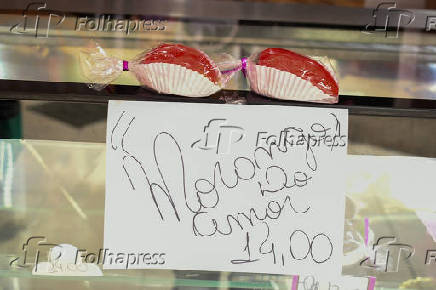 Folhapress
Folhapress
"Morango
Do
amor
14,00
Folhapress
Folhapress